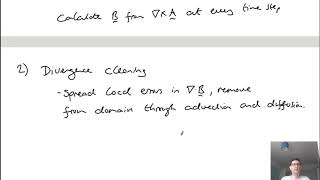 Calculate B from ∇×A at every time step
2) Divergence cleaning
- Spread local errors in ∇·B, remove
from domain through advection and diffusion.